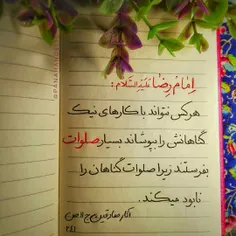 امام رضا علیه‌السلام:
هرکس نتواند با کارهای نیک
گناهانش را بپوشاند بسیار صلوات
بفرستند زیرا صلوات گناهان را
نابود میکند.